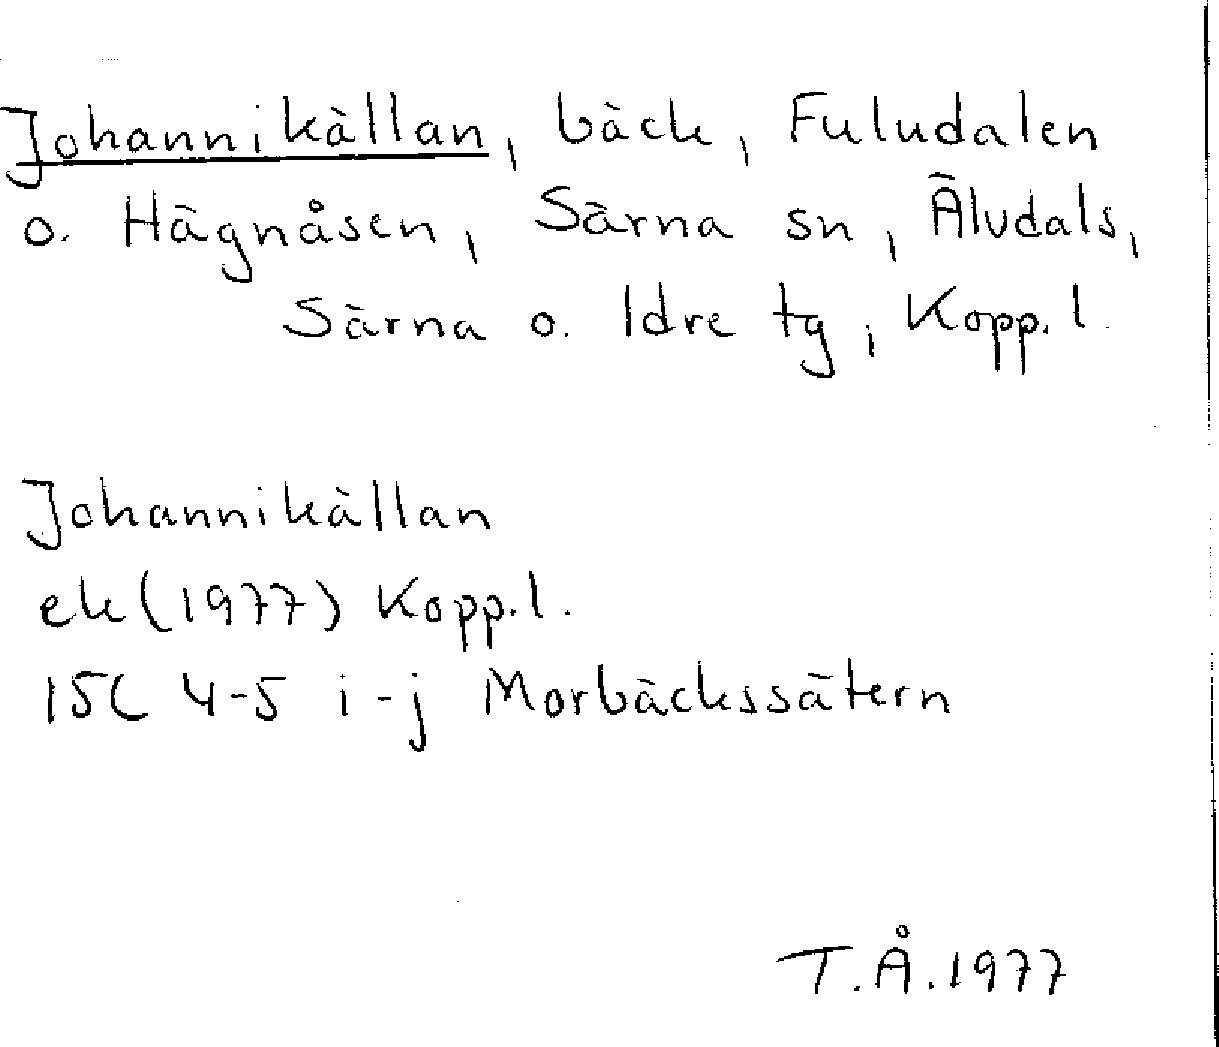 Johannikällan, bäck, Fuludalen
o. Hägnåsen, Särna sn, Älvdals,
Särna o. Idre tg, Kopp. l.
Johannikällan
ek (1977) Kopp. l.
15C 4-5 i-j Morbäckssätern
T.Å. 1977